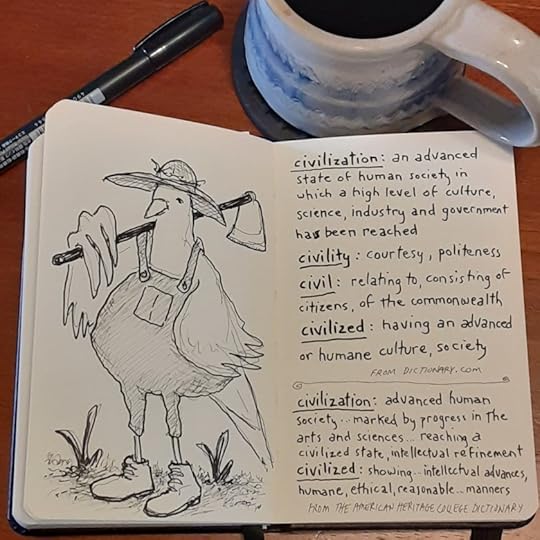 civilization: an advanced
state of human society in
which a high level of culture,
science, industry and government
has been reached
civility: courtesy, politeness
civil: relating to, consisting of
citizens, of the commonwealth
civilized: having an advanced
or humane culture, society
FROM DICTIONARY.COM
civilization: advanced human
society... marked by progress in the
arts and sciences... reaching a
civilized state, intellectual refinement
civilized: showing... intellectual advances,
humane, ethical, reasonable... manners
FROM THE AMERICAN HERITAGE COLLEGE DICTIONARY